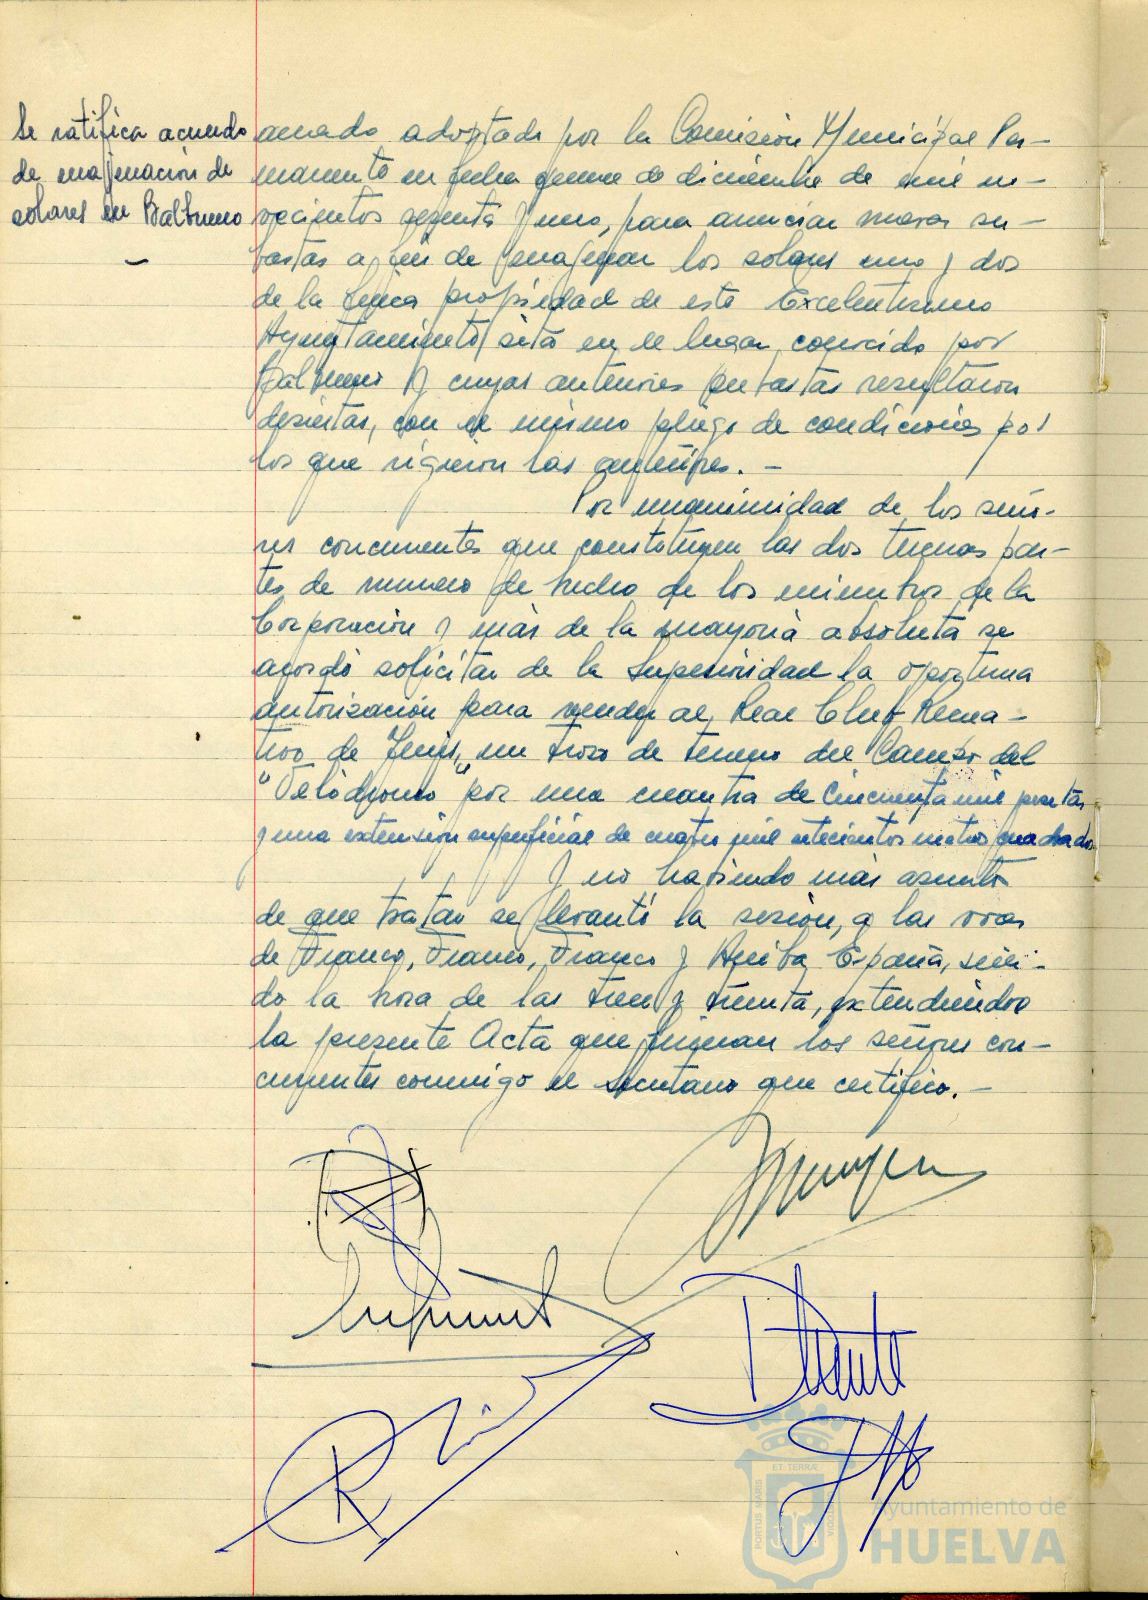 Se ratifica acuerdo
de enajenación de
solares en Balbueno
acuerdo adoptado por la Comisión Municipal Per-
manente en fecha quince de diciembre de mil no-
vecientos sesenta y uno, para anunciar nuevas su-
bastas a fin de enajenar los solares uno y dos
de la finca propiedad de este Excelentísimo
Ayuntamiento sita en el lugar conocido por
Balbueno y cuyas anteriores subastas resultaron
desiertas, con el mismo pliego de condiciones por
los que rigieron las anteriores. -
Por unanimidad de los seño-
res concurrentes que constituyen las dos terceras par-
tes de número de hecho de los miembros de la
Corporación y más de la mayoría absoluta se
acordó solicitar de la Superioridad la oportuna
autorización para vender al Real Club Recrea-
tivo de Tenis, un trozo de terreno del Campo del
"Velódromo" por una cuantía de cincuenta mil pesetas
y una extensión superficial de cuatro mil setecientos metros cuadrados
Y no habiendo más asuntos
de que tratar se levantó la sesión, a las voces
de Franco, Franco, Franco y Arriba España, sien-
do la hora de las trece y treinta, extendiéndose
la presente Acta que firman los señores con-
currentes conmigo el secretario que certifico. -
ET TERRÆ
PORTUS MARIS
CUSTODIA
Ayuntamiento de
HUELVA